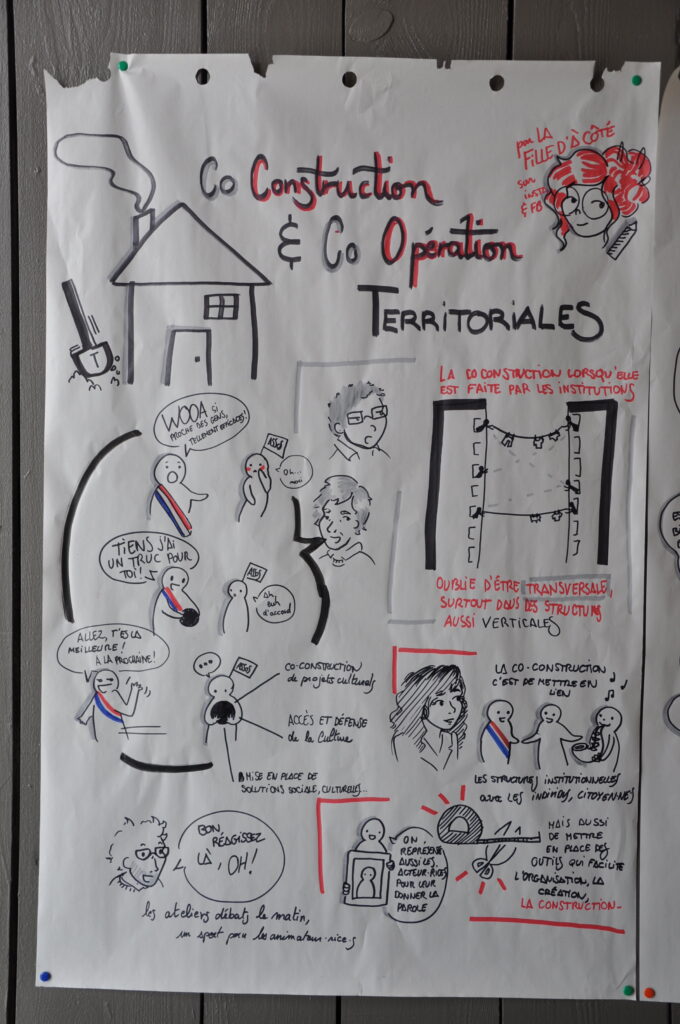 Co Construction
& Co Opération
TERRITORIALES
par LA
FILLE D'À CÔTÉ
sur INSTA
& FB
T
WOOA SI
PROCHE DES GENS,
TELLEMENT EFFICACES!
ASSOS
Oh...
merci
TIENS J'AI
UN TRUC POUR
TOI!
ASSOS
Ah,
BUH
d'accord
ALLEZ, T'ES LA
MEILLEURE!
À LA PROCHAINE!
...
ASSOS
CO-CONSTRUCTION
de projets culturels
ACCÈS ET DÉFENSE
de la Culture
MISE EN PLACE DE
SOLUTIONS SOCIALE, CULTURELLES...
LA CO CONSTRUCTION LORSQU'ELLE
EST FAITE PAR LES INSTITUTIONS
OUBLIE D'ÊTRE TRANSVERSALE,
SURTOUT DANS DES STRUCTURES
AUSSI VERTICALES
LA CO-CONSTRUCTION
C'EST DE METTRE EN
LIEN
LES STRUCTURES INSTITUTIONNELLES
avec LES INDIVIDUS, CITOYEN·NES
BON,
RÉAGISSEZ
LÀ, OH!
les ateliers débats le matin,
un sport pour les animateur·rice·s
ON
REPRÉSENTE
AUSSI LES
ACTEUR·RICES
POUR LEUR
DONNER LA
PAROLE
MAIS AUSSI
DE METTRE
EN PLACE DES
OUTILS QUI FACILITE
L'ORGANISATION, LA
CRÉATION,
LA CONSTRUCTION-